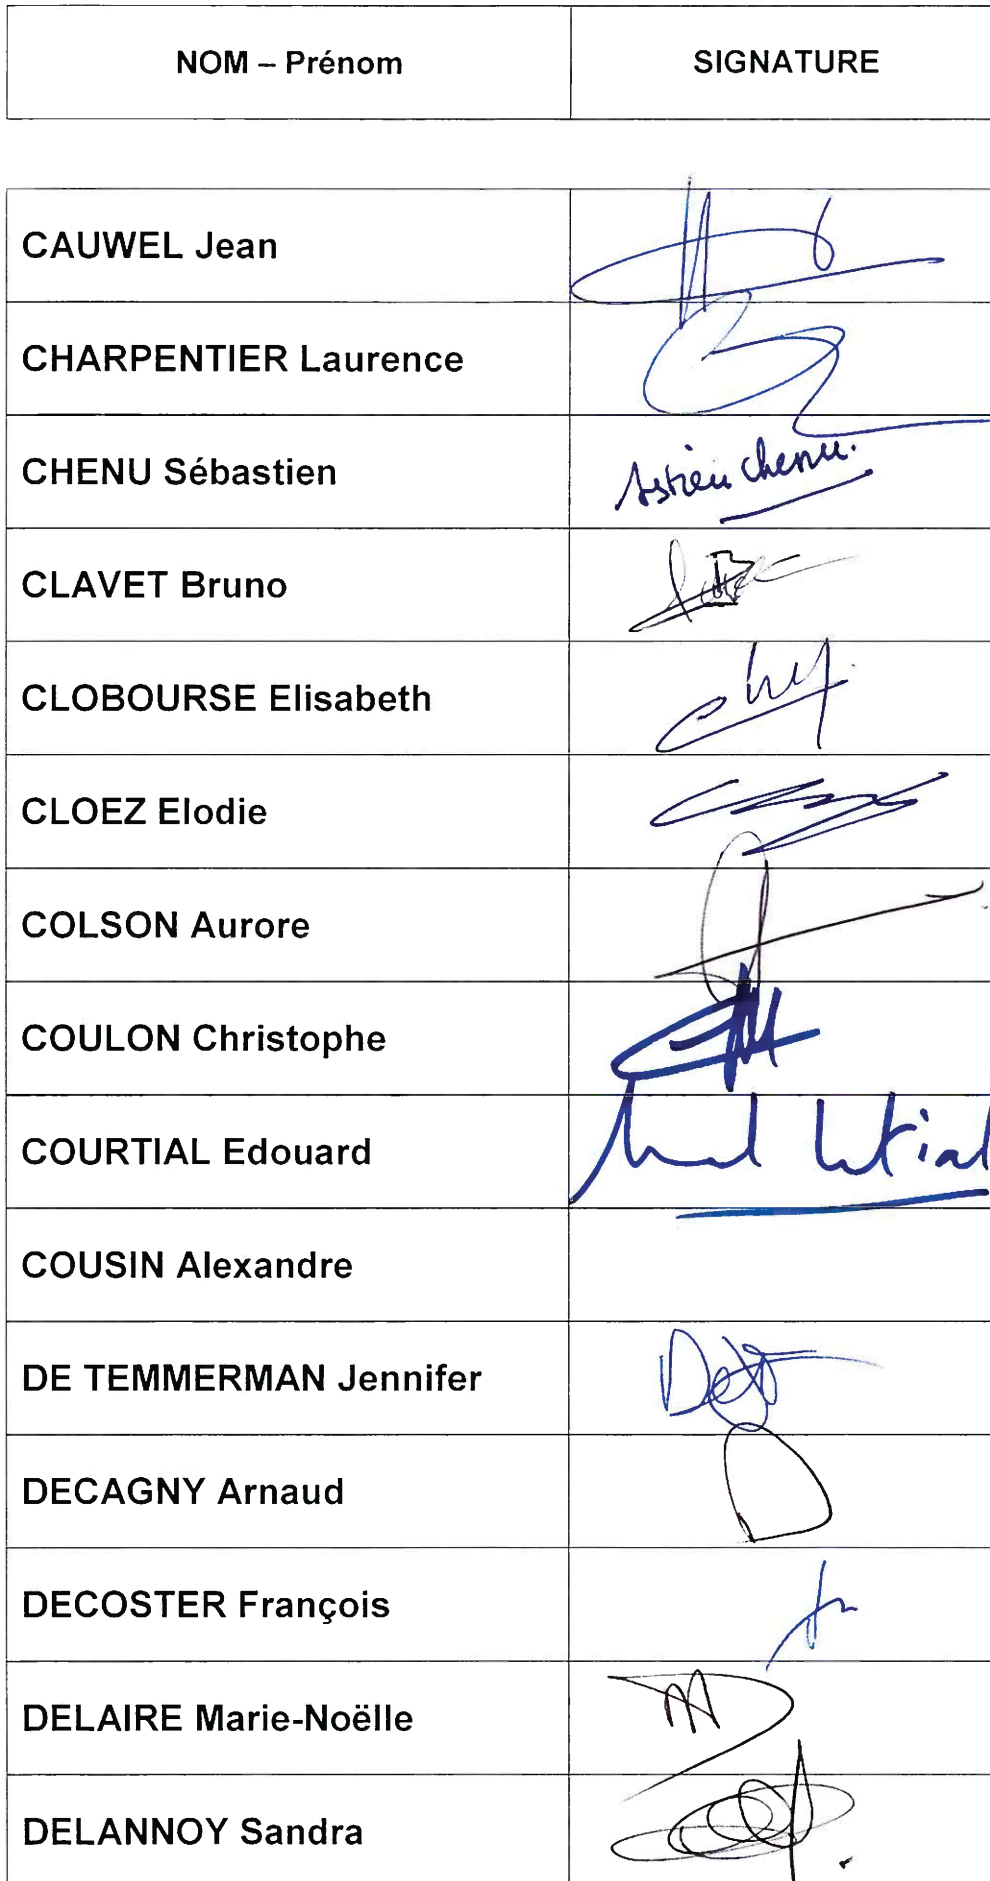 NOM – Prénom SIGNATURE
CAUWEL Jean
CHARPENTIER Laurence
CHENU Sébastien Chenu.
CLAVET Bruno
CLOBOURSE Elisabeth
CLOEZ Elodie
COLSON Aurore
COULON Christophe
COURTIAL Edouard
COUSIN Alexandre
DE TEMMERMAN Jennifer
DECAGNY Arnaud
DECOSTER François
DELAIRE Marie-Noëlle
DELANNOY Sandra